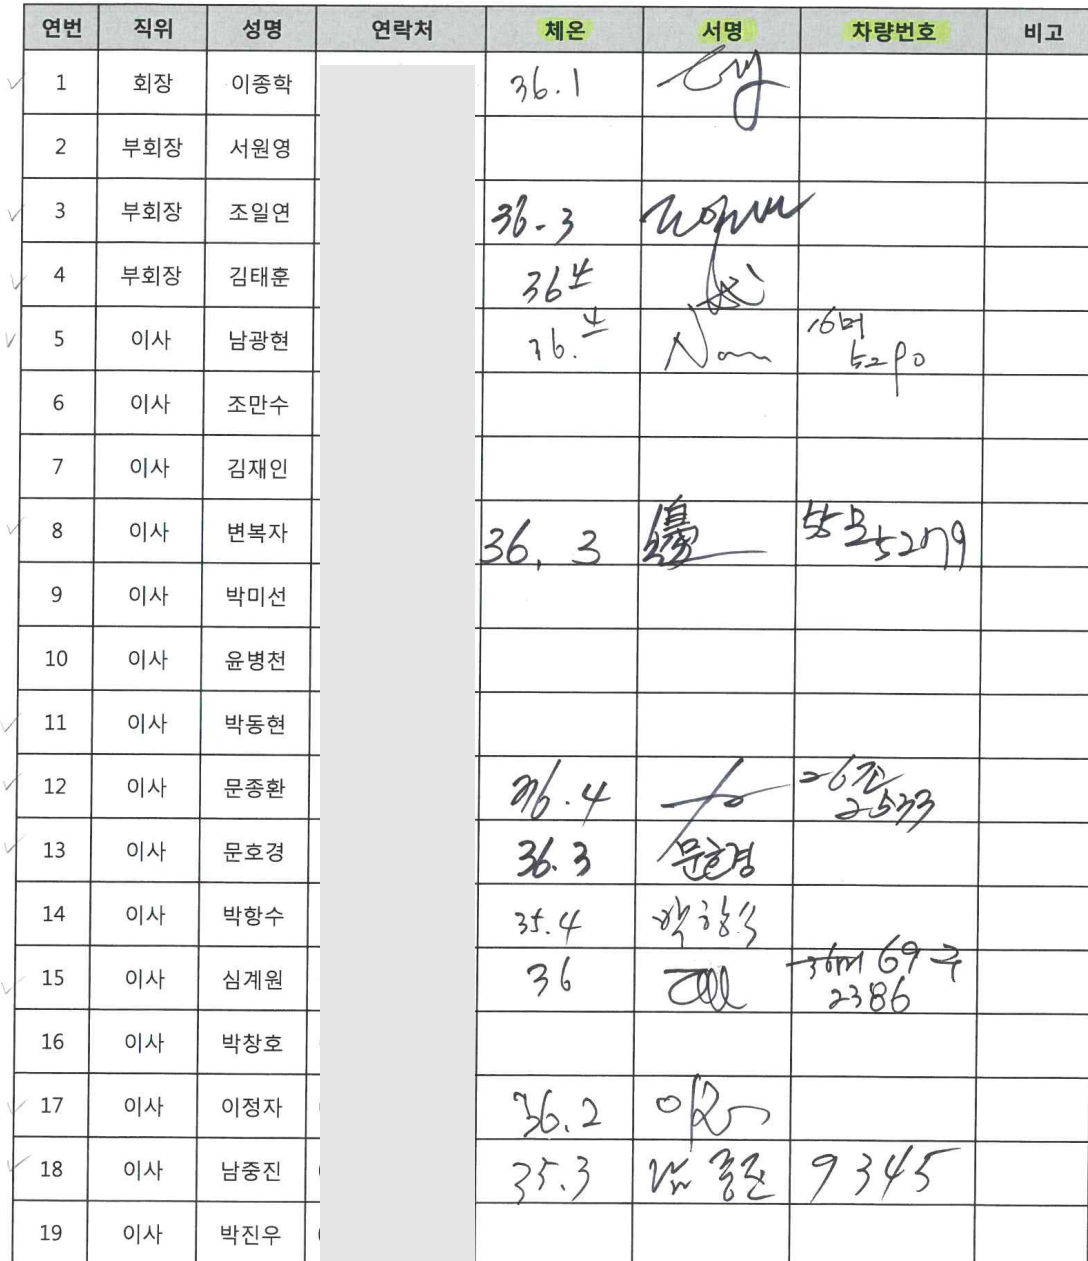 연번 직위 성명 연락처 체온 서명 차량번호 비고
1 회장 이종학 36.1
2 부회장 서원영
3 부회장 조일연 36.3
4 부회장 김태훈 36.4
5 이사 남광현 36.4 Nam
6 이사 조만수
7 이사 김재인
8 이사 변복자 36.3 55모 5279
9 이사 박미선
10 이사 윤병천
11 이사 박동현
12 이사 문종환 36.4
2533
13 이사 문호경 36.3 문호경
14 이사 박항수 35.4 박항수
15 이사 심계원 36 69주
2386
16 이사 박창호
17 이사 이정자 36.2
18 이사 남중진 35.3 남중진 9345
19 이사 박진우